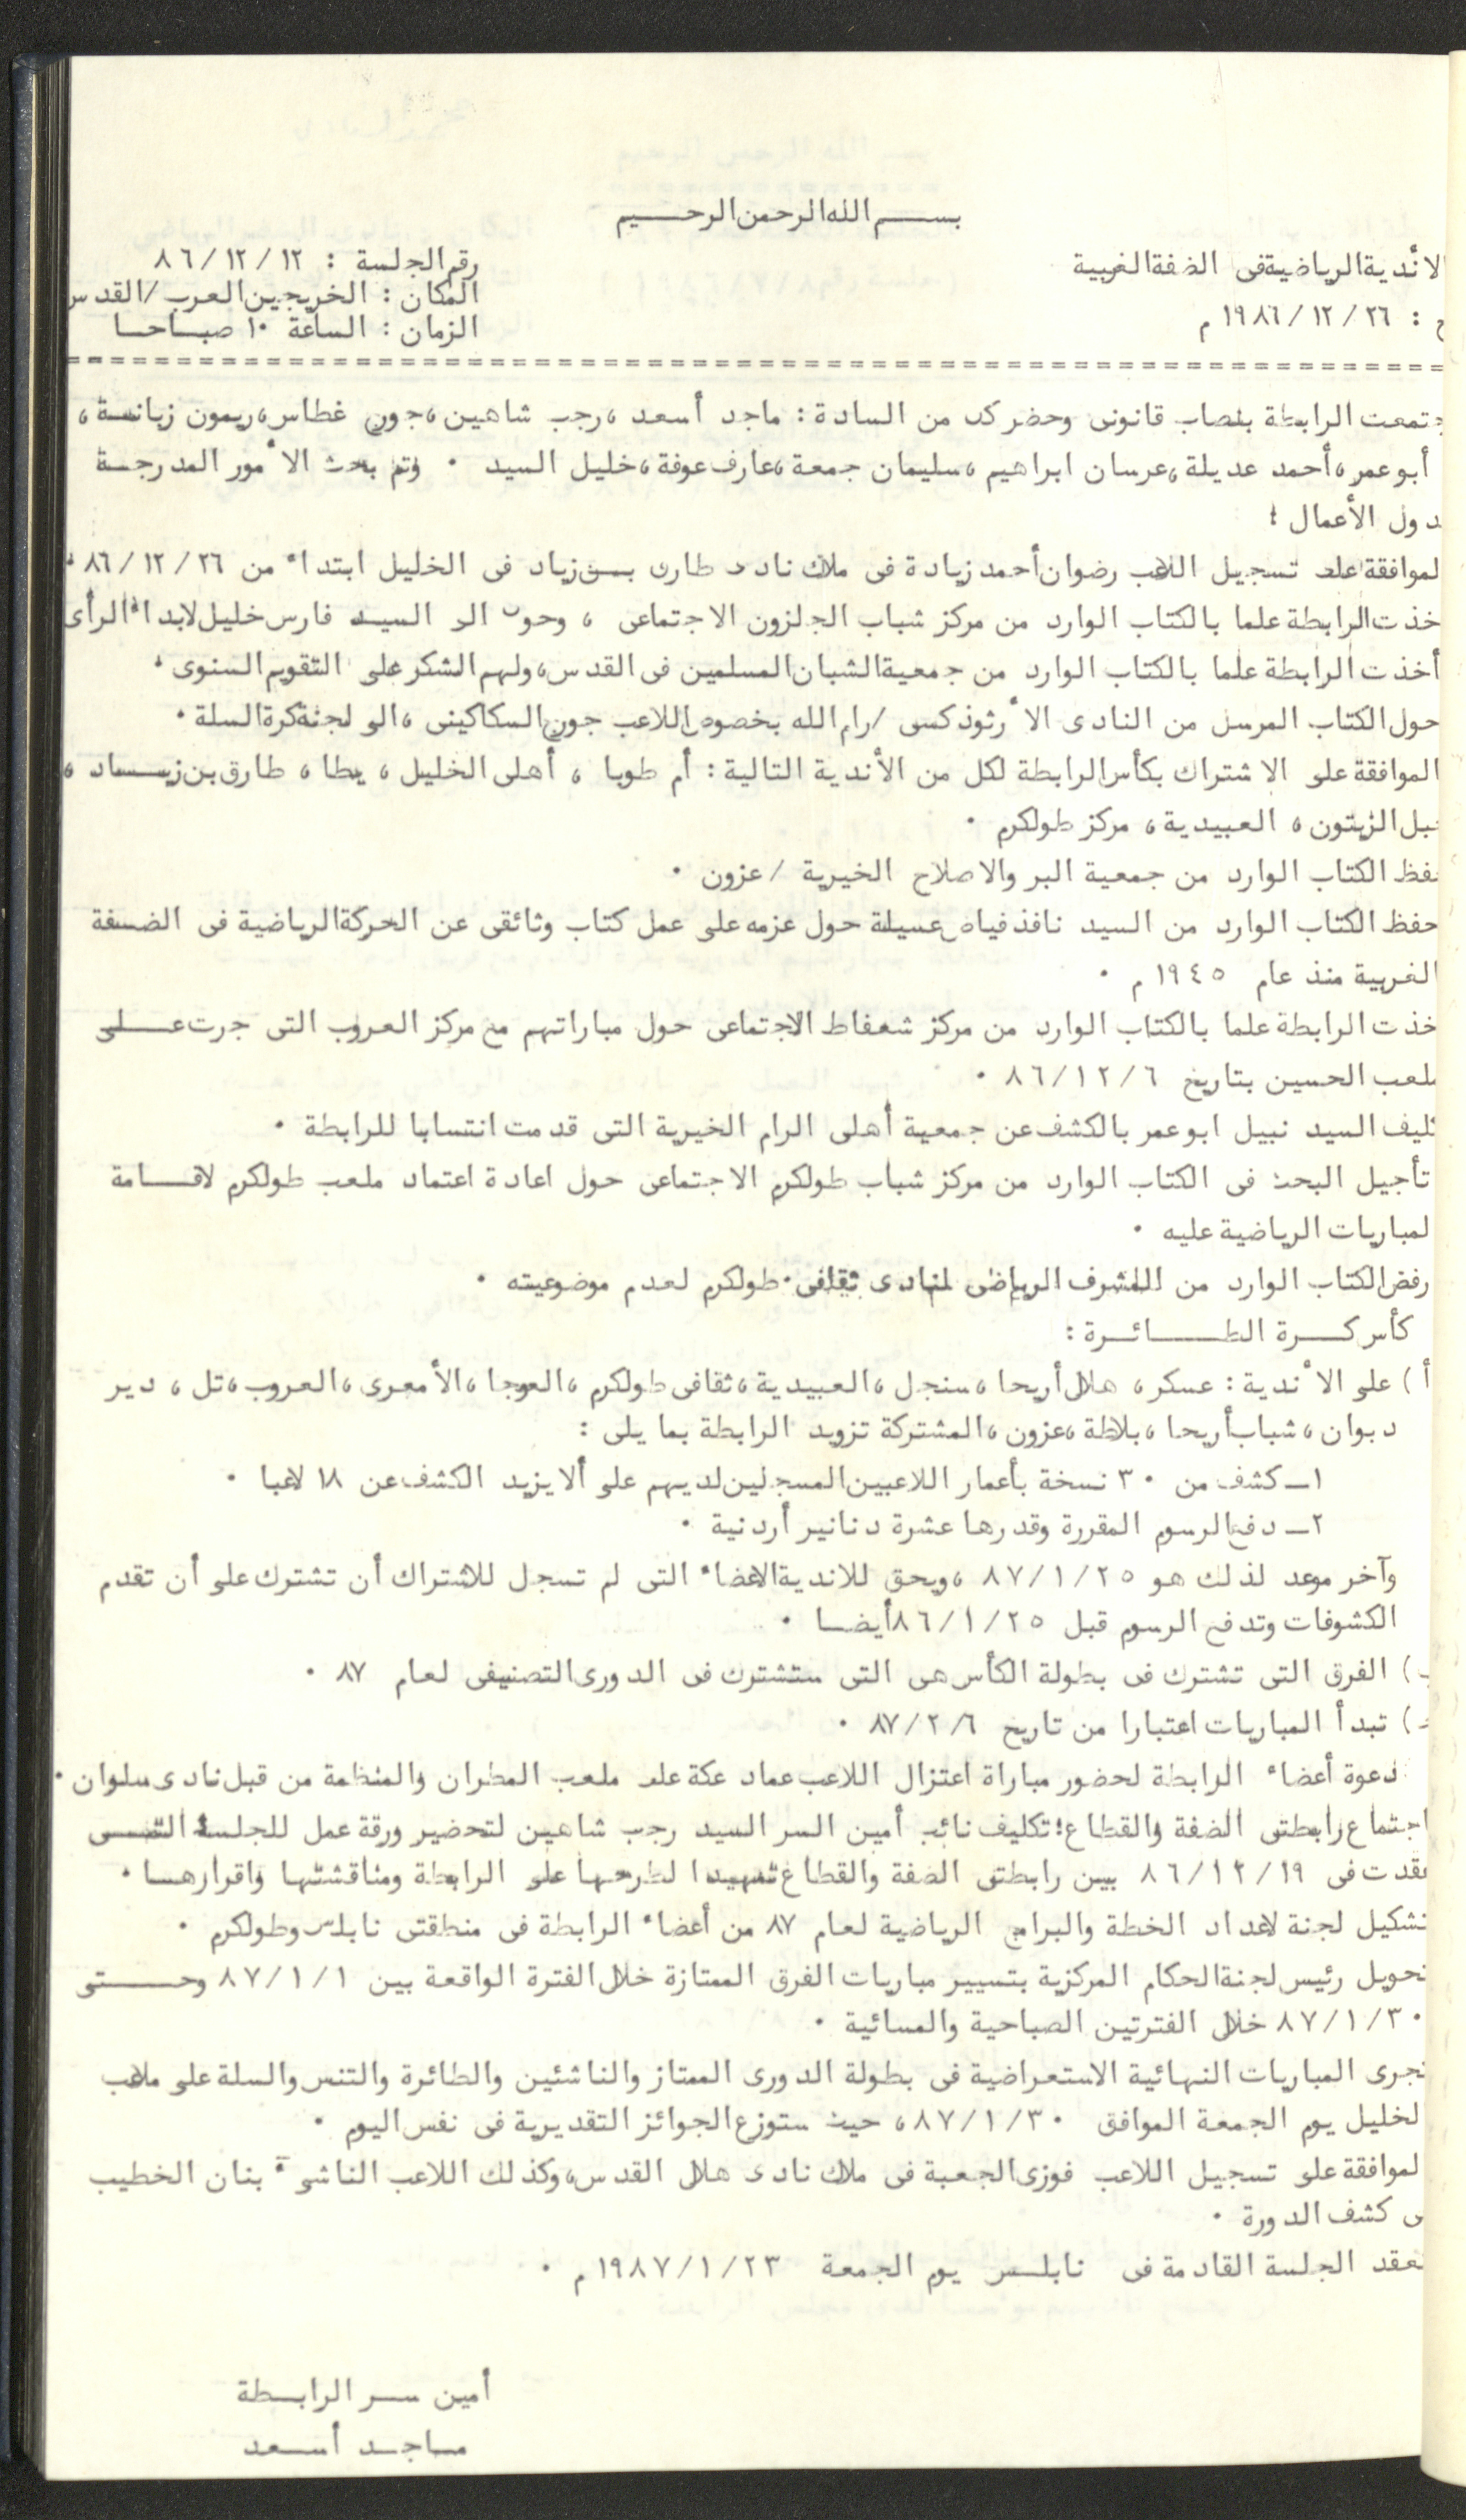 بسم الله الرحمن الرحيم
الأندية الرياضية فى الضفة الغربية
رقم الجلسة : ١٢ /١٢ /٨٦
المكان : الخريجين العرب /القدس
: ٢٦ /١٢ /١٩٨٦ م
الزمان : الساعة ١٠ صباحا
تمعت الرابطة بنصاب قانونى وحضر كل من السادة : ماجد أسعد ، رجب شاهين ، جون غطاس ، ريمون زبانة ،
أبو عمر ، أحمد عديلة ، عرسان ابراهيم ، سليمان جمعة ، عارف عوفة ، خليل السيد ٠ وتم بحث الأمور المدرجة
دول الأعمال :
لموافقة على تسجيل اللاعب رضوان أحمد زيادة فى ملاك نادى طارق بن زياد فى الخليل ابتداء من ٢٦ /١٢ /٨٦ ٠
خذت الرابطة علما بالكتاب الوارد من مركز شباب الجلزون الاجتماعى ، وحول الى السيد فارس خليل لابداء الرأى
أخذت الرابطة علما بالكتاب الوارد من جمعية الشبان المسلمين فى القدس ، ولهم الشكر على التقويم السنوى ٠
حول الكتاب المرسل من النادى الأرثوذكسى /رام الله بخصوص اللاعب جون السكاكينى ، الى لجنة كرة السلة ٠
الموافقة على الاشتراك بكأس الرابطة لكل من الأندية التالية : أم طوبا ، أهلى الخليل ، يطا ، طارق بن زياد ،
بل الزيتون ، العبيدية ، مركز طولكرم ٠
فظ الكتاب الوارد من جمعية البر والاصلاح الخيرية /عزون ٠
حفظ الكتاب الوارد من السيد نافذ فياض عسيلة حول عزمه على عمل كتاب وثائقى عن الحركة الرياضية فى الضفة
الغربية منذ عام ١٩٤٥ م ٠
خذت الرابطة علما بالكتاب الوارد من مركز شعفاط الاجتماعى حول مباراتهم مع مركز العروب التى جرت على
لعب الحسين بتاريخ ٦ /١٢ /٨٦ ٠
ليف السيد نبيل ابو عمر بالكشف عن جمعية أهلى الرام الخيرية التى قدمت انتسابا للرابطة ٠
تأجيل البحث فى الكتاب الوارد من مركز شباب طولكرم الاجتماعى حول اعادة اعتماد ملعب طولكرم لاقامة
لمباريات الرياضية عليه ٠
رفض الكتاب الوارد من المشرف الرياضى لنادى ثقافى طولكرم لعدم موضوعيته ٠
كأس كرة الطائرة :
أ ) على الأندية : عسكر ، هلال أريحا ، سنجل ، العبيدية ، ثقافى طولكرم ، العوجا ، الأمعرى ، العروب ، تل ، دير
دبوان ، شباب أريحا ، بلاطة ، عزون ، المشتركة تزويد الرابطة بما يلى :
١ـ كشف من ٣٠ نسخة بأعمار اللاعبين المسجلين لديهم على ألا يزيد الكشف عن ١٨ لاعبا ٠
٢ـ دفع الرسوم المقررة وقدرها عشرة دنانير أردنية ٠
وآخر موعد لذلك هو ٢٥ /١ /٨٧ ، ويحق للاندية الاعضاء التى لم تسجل للاشتراك أن تشترك على أن تقدم
الكشوفات وتدفع الرسوم قبل ٢٥ /١ /٨٦ أيضا ٠
) الفرق التى تشترك فى بطولة الكأس هى التى ستشترك فى الدورى التصنيفى لعام ٨٧ ٠
) تبدأ المباريات اعتبارا من تاريخ ٦ /٢ /٨٧ ٠
دعوة أعضاء الرابطة لحضور مباراة اعتزال اللاعب عماد عكة على ملعب المطران والمنظمة من قبل نادى سلوان ٠
اجتماع رابطتى الضفة والقطاع : تكليف نائب أمين السر السيد رجب شاهين لتحضير ورقة عمل للجلسة التى
عقدت فى ١٩ /١٢ /٨٦ بين رابطتى الضفة والقطاع تمهيدا لطرحها على الرابطة ومناقشتها واقرارها ٠
تشكيل لجنة لاعداد الخطة والبرامج الرياضية لعام ٨٧ من أعضاء الرابطة فى منطقتى نابلس وطولكرم ٠
تحويل رئيس لجنة الحكام المركزية بتسيير مباريات الفرق الممتازة خلال الفترة الواقعة بين ١ /١ /٨٧ وحتى
٣٠ /١ /٨٧ خلال الفترتين الصباحية والمسائية ٠
تجرى المباريات النهائية الاستعراضية فى بطولة الدورى الممتاز والناشئين والطائرة والتنس والسلة على ملاعب
لخليل يوم الجمعة الموافق ٣٠ /١ /٨٧ ، حيث ستوزع الجوائز التقديرية فى نفس اليوم ٠
لموافقة على تسجيل اللاعب فوزى الجعبة فى ملاك نادى هلال القدس ، وكذلك اللاعب الناشىء بنان الخطيب
ى كشف الدورة ٠
تعقد الجلسة القادمة فى نابلس يوم الجمعة ٢٣ /١ /١٩٨٧ م ٠
أمين سر الرابطة
ماجد أسعد